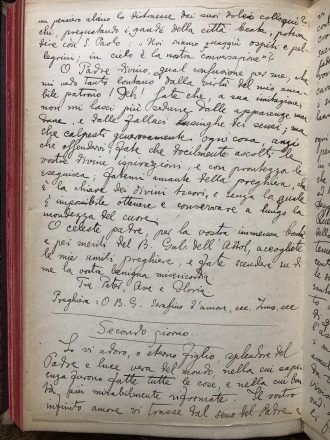 un pensiero alieno lo distraesse dai suoi dolci colloqui?
chi, pregustando i gaudi della città beata, poteva
dire con S. Paolo: Noi siamo quaggiù ospiti e pel-
legrini; in cielo è la nostra conversazione"?
O Padre divino, qual confusione per me, che
mi vedo tanto lontano dalla virtù del mio ama-
bile patrono! Deh! fate che a sua imitazione,
non mi lasci più sedurre dalle apparenze mon-
dane, e dalle fallaci lusinghe dei sensi; ma
che calpesti generosamente ogni cosa, anzi
che offendervi. Fate che docilmente ascolti le
vostre divine ispirazioni, e con prontezza le
eseguisca; fatemi amante della preghiera, che
è la chiave dei divini tesori, e senza la quale
è impossibile ottenere e conservare a lungo la
mondezza del cuore.
O celeste padre, per la vostra immensa bontà
e pei meriti del B. accogliete
le mie umili preghiere, e fate scendere su di
me la vostra benigna misericordia
Tre Pater, Ave e Gloria
Preghiera: O B. G. Serafino d'amore, ecc.
Secondo giorno.
Io vi adoro, o eterno figlio, splendore del
Padre e luce vera del mondo, nella cui sapi-
enza furono fatte tutte le cose, e nella cui bon-
tà, più mirabilmente riformate. Il vostro
infinito amore vi trasse dal seno del Padre e